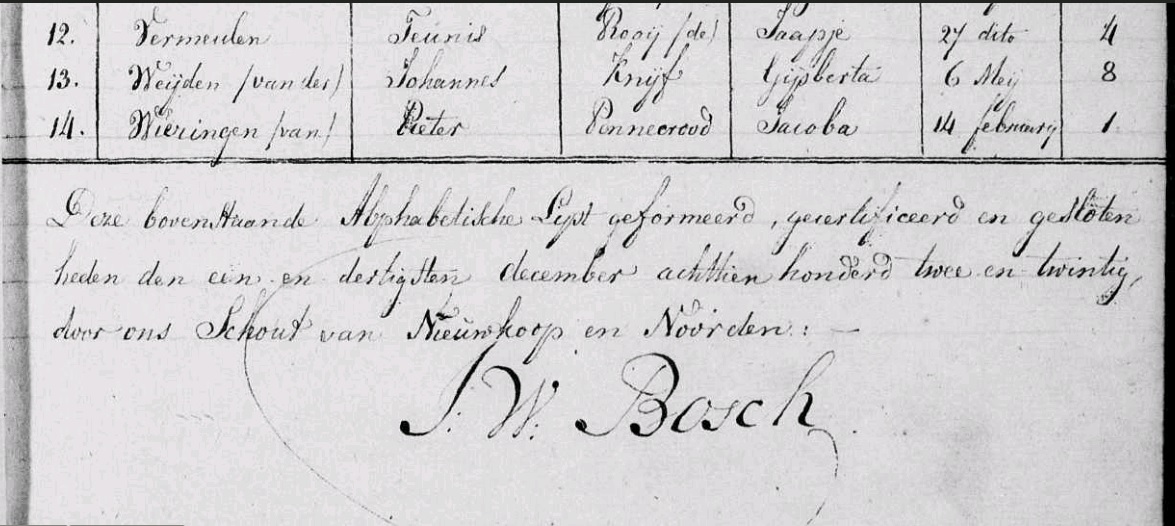 12. Vermeulen Teunis Rooij (de) Jaapje 27 dito 4
13. Weijden (van der) Johannes Knijf Gijsberta 6 Meij 8
14. Wieringen (van) Pieter Jacoba 14 february 1.
Deze bovenstaande Alphabetische Lijst geformeerd, gecertificeerd en gesloten
heden den een en dertigsten december achttien honderd twee en twintig,
door ons Schout van Nieuwkoop en Noorden: —
J. W. Bosch